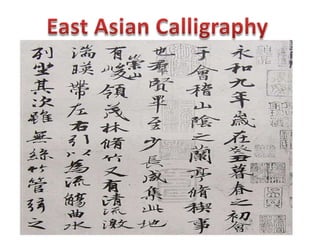 East Asian Calligraphy
永和九年歲在癸丑暮春之初會
于會稽山陰之蘭亭脩禊事
也羣賢畢至少長咸集此地
有崇山峻領茂林脩竹又有清流激
湍暎帶左右引以為流觴曲水
列坐其次雖無絲竹管弦之